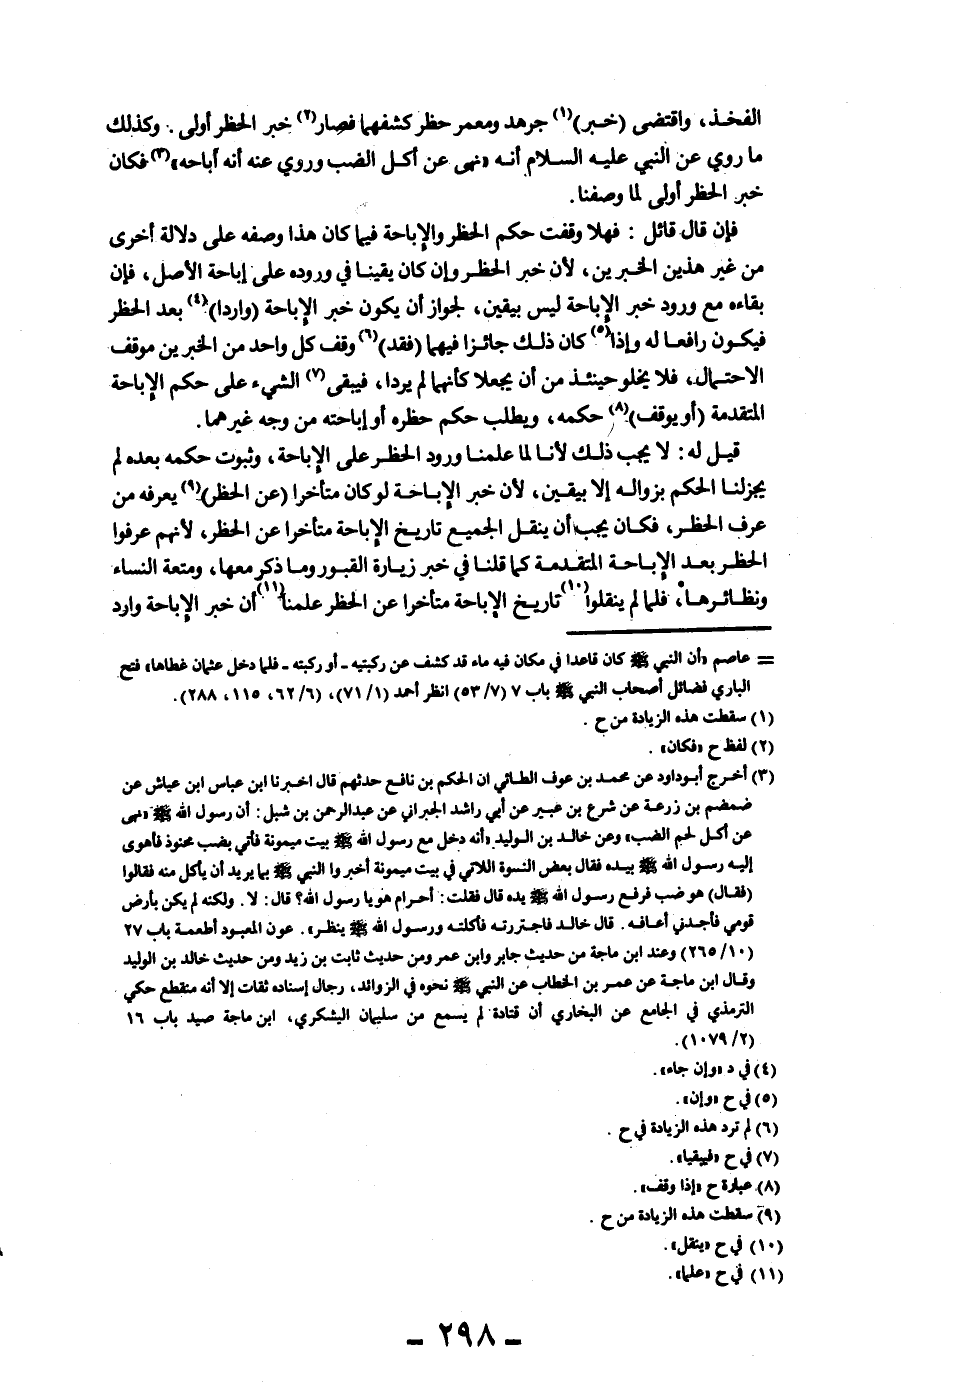 الفخذ، واقتضى (خبر)(١) جرهد ومعمر حظر كشفهما فصار(٢) خبر الحظر أولى. وكذلك
ما روي عن النبي عليه السلام أنه «نهى عن أكل الضب وروي عنه أنه أباحه»(٣) فكان
خبر الحظر أولى لما وصفنا.
فإن قال قائل: فهلا وقفت حكم الحظر والإباحة فيما كان هذا وصفه على دلالة أخرى
من غير هذين الخبرين، لأن خبر الحظر وإن كان يقينا في وروده على إباحة الأصل، فإن
بقاءه مع ورود خبر الإباحة ليس بيقين، لجواز أن يكون خبر الإباحة (واردا)(٤) بعد الحظر
فيكون رافعا له وإذا(٥) كان ذلك جائزا فيهما (فقد)(٦) وقف كل واحد من الخبرين موقف
الاحتمال، فلا يخلو حينئذ من أن يجعلا كأنهما لم يردا، فيبقى(٧) الشيء على حكم الإباحة
المتقدمة (أو يوقف)(٨) حكمه، ويطلب حكم حظره أو إباحته من وجه غيرهما.
قيل له: لا يجب ذلك لأنا لما علمنا ورود الحظر على الإباحة، وثبوت حكمه بعده لم
يجزلنا الحكم بزواله إلا بيقين، لأن خبر الإباحة لو كان متأخرا (عن الحظر)(٩) يعرفه من
عرف الحظر، فكان يجب أن ينقل الجميع تاريخ الإباحة متأخرا عن الحظر، لأنهم عرفوا
الحظر بعد الإباحة المتقدمة كما قلنا في خبر زيارة القبور وما ذكر معها، ومتعة النساء
ونظائرها، فلما لم ينقلوا(١٠) تاريخ الإباحة متأخرا عن الحظر علمنا(١١) أن خبر الإباحة وارد
= عاصم «أن النبي ﷺ كان قاعدا في مكان فيه ماء قد كشف عن ركبتيه - أو ركبته - فلما دخل عثمان غطاها» فتح
الباري فضائل أصحاب النبي ﷺ باب ٧ (٥٣/٧) انظر أحمد (٧١/١)، (٦٢/٦، ١١٥، ٢٨٨).
(١) سقطت هذه الزيادة من ح.
(٢) لفظ ح «فكان».
(٣) أخرج أبوداود عن محمد بن عوف الطائي ان الحكم بن نافع حدثهم قال اخبرنا ابن عباس ابن عياش عن
ضمضم بن زرعة عن شرع بن عبير عن أبي راشد الجبراني عن عبدالرحمن بن شبل: أن رسول الله ﷺ «نهى
عن أكل لحم الضب» وعن خالد بن الوليد «أنه دخل مع رسول الله ﷺ بيت ميمونة فأتي بضب محنوذ فأهوى
إليه رسول الله ﷺ بيده فقال بعض النسوة اللاتي في بيت ميمونة أخبروا النبي ﷺ بما يريد أن يأكل منه فقالوا
(فقال) هو ضب فرفع رسول الله ﷺ يده قال فقلت: أحرام هو يا رسول الله؟ قال: لا. ولكنه لم يكن بأرض
قومي فأجدني أعافه. قال خالد فاجتررته فأكلته ورسول الله ﷺ ينظر». عون المعبود أطعمة باب ٢٧
(٢٦٥/١٠) وعند ابن ماجة من حديث جابر وابن عمر ومن حديث ثابت بن زيد ومن حديث خالد بن الوليد
وقال ابن ماجة عن عمر بن الخطاب عن النبي ﷺ نحوه في الزوائد، رجال إسناده ثقات إلا أنه منقطع حكي
الترمذي في الجامع عن البخاري أن قتادة لم يسمع من سليمان اليشكري، ابن ماجة صيد باب ١٦
(١٠٧٩/٢).
(٤) في د «وإن جاء».
(٥) في ح «وإن».
(٦) لم ترد هذه الزيادة في ح.
(٧) في ح «فيبقيا».
(٨) عبارة ح «إذا وقف».
(٩) سقطت هذه الزيادة من ح.
(١٠) في ح «ينقل».
(١١) في ح «علما».
- ٢٩٨ -